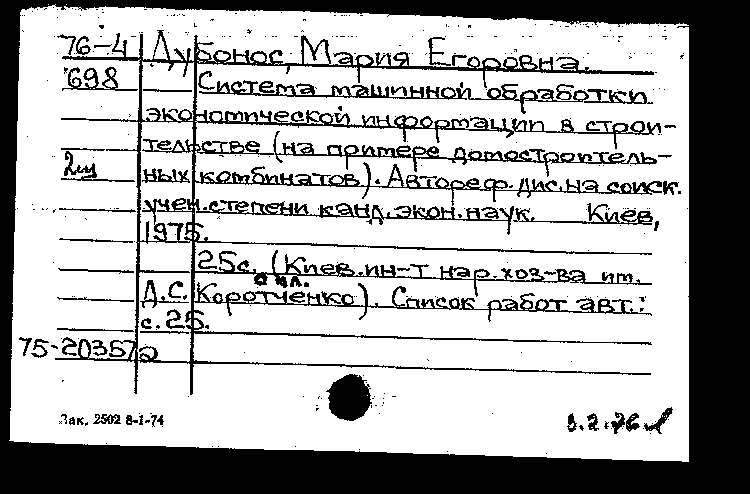 76-4 Дубонос, Мария Егоровна.
698 Система машинной обработки
экономической информации в строи-
тельстве (на примере домостроитель-
2щ ных комбинатов). Автореф. дис. на соиск.
учен. степени канд. экон. наук. Киев,
1975.
25с. (Киев. ин-т нар. хоз-ва им.
с ил.
Д.С. Коротченко). Список работ авт.:
с. 25.
75-20357а
Зак. 2502 8-1-74